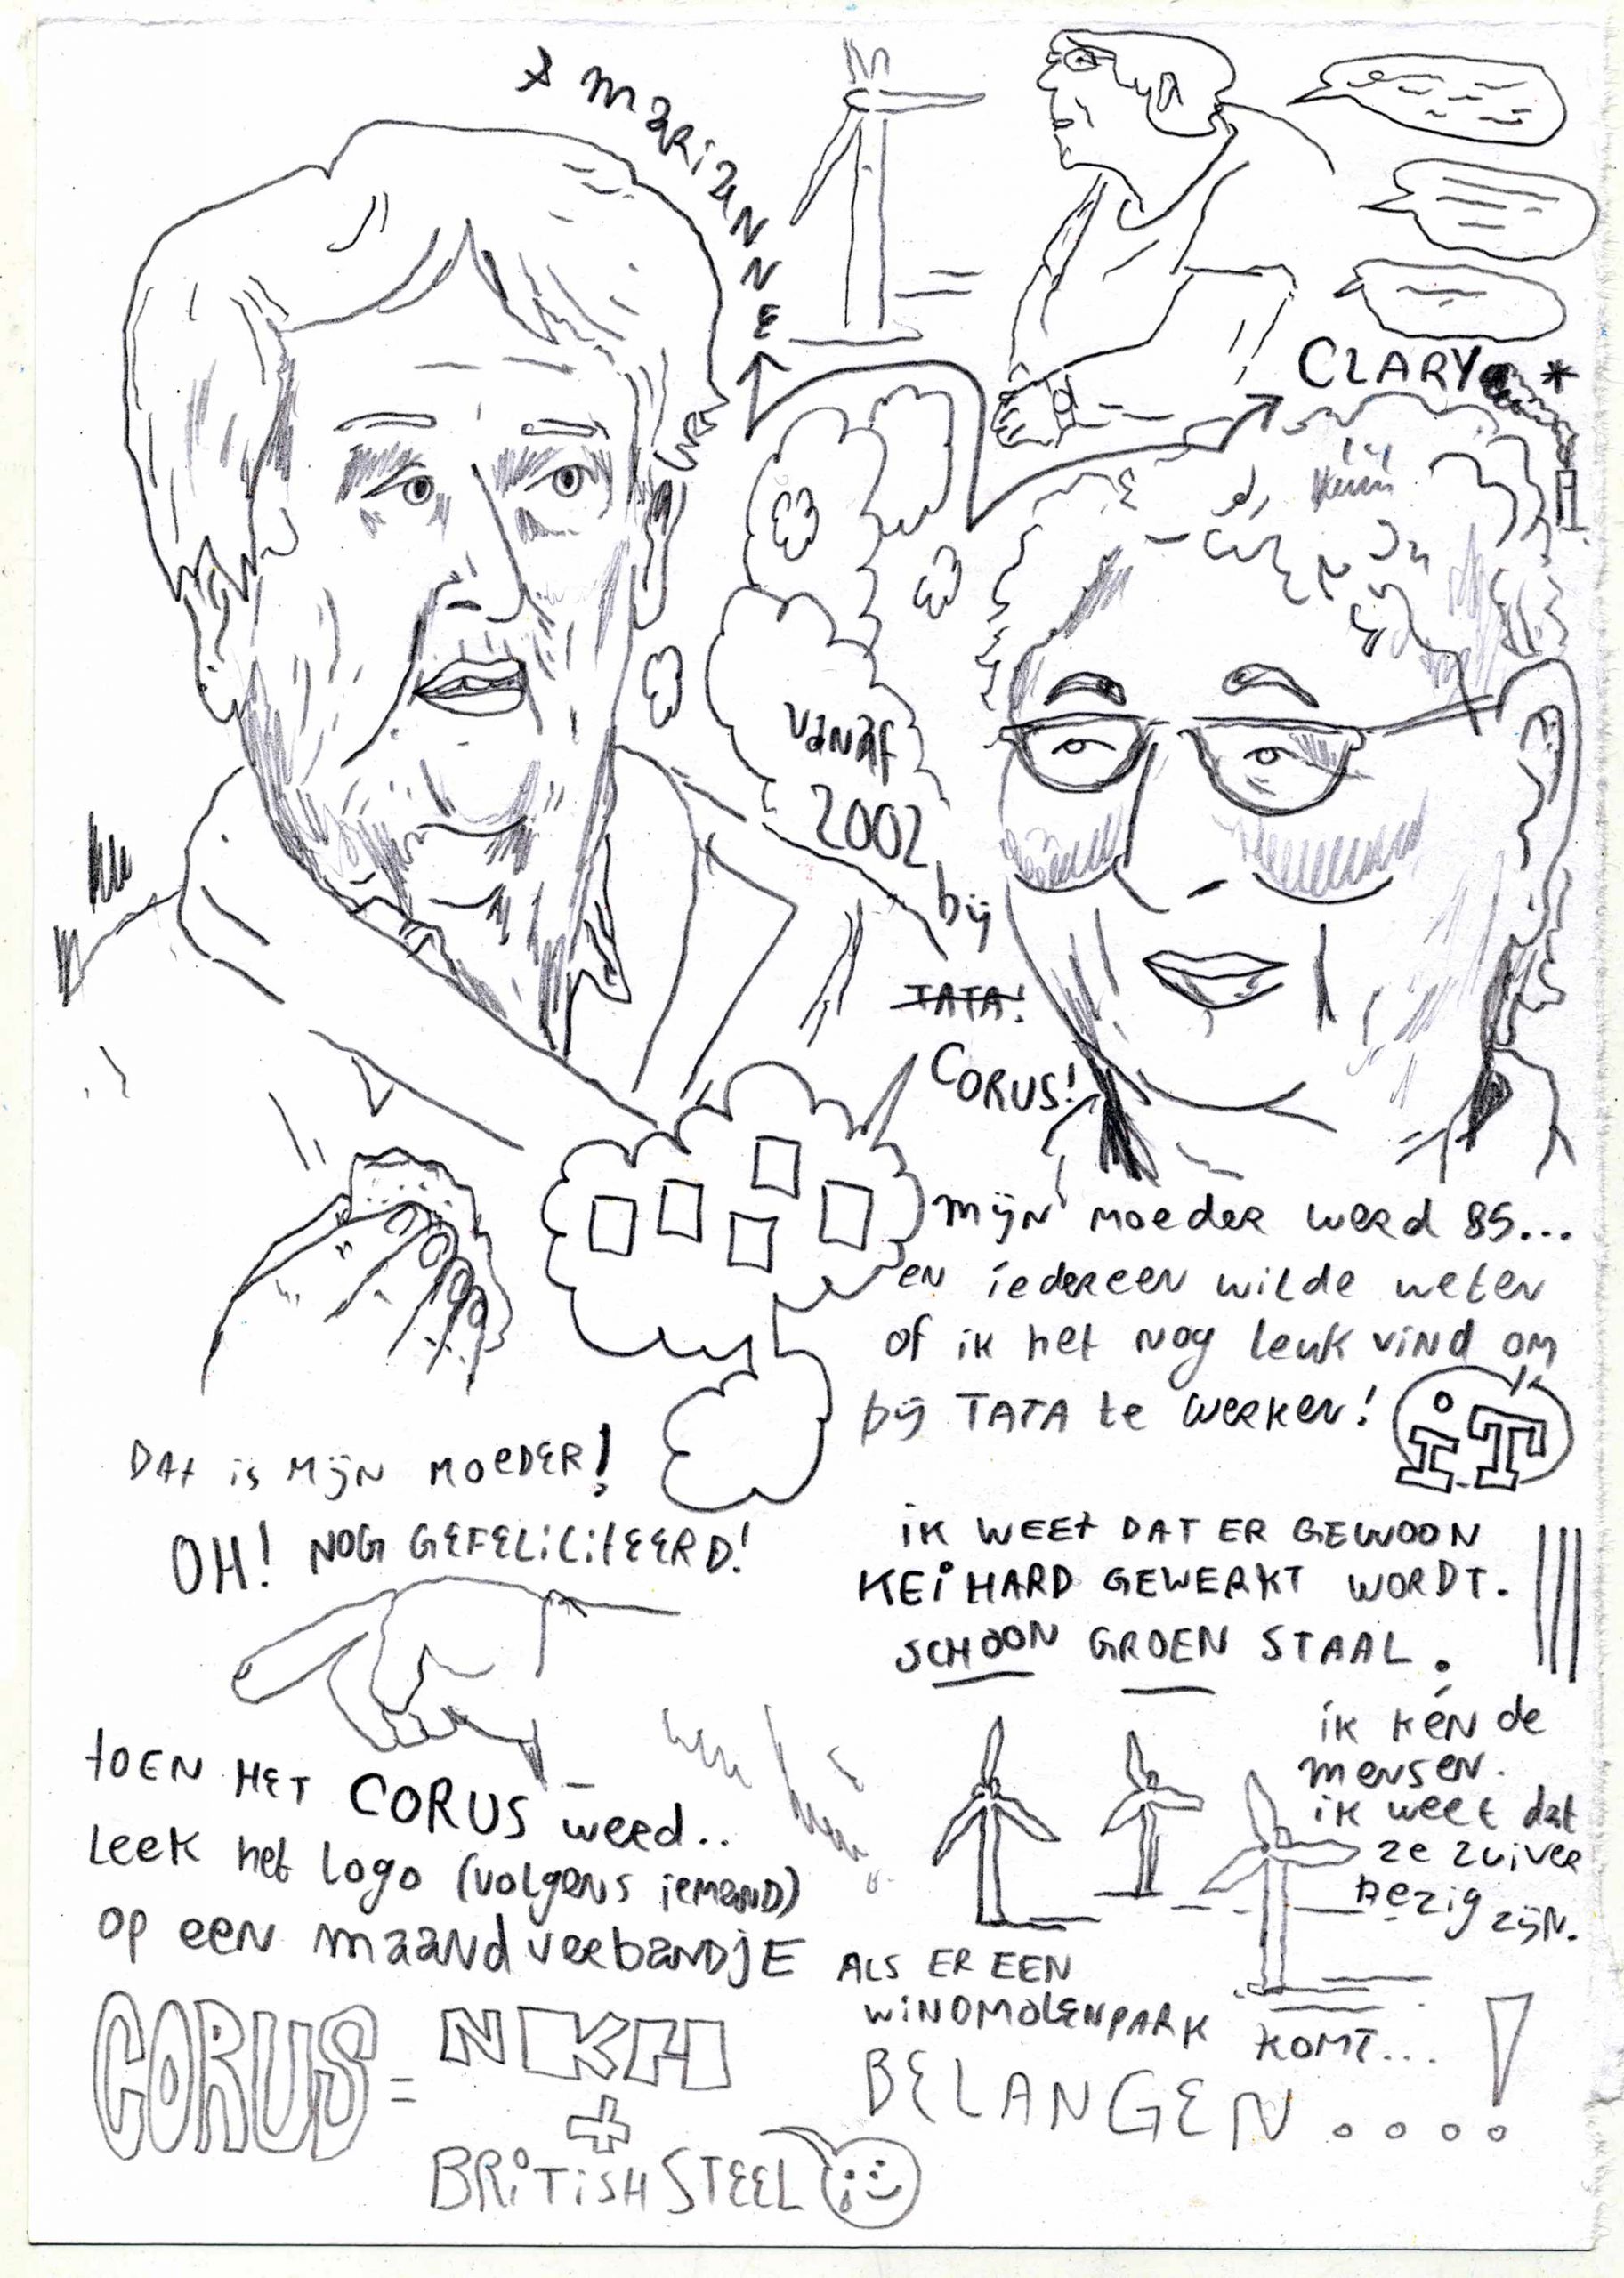 MARIANNE
CLARY *
vanaf
2002
bij
TATA!
CORUS!
mijn moeder werd 85...
en iedereen wilde weten
of ik het nog leuk vind om
bij TATA te werken!
iT
DAt is Mijn MOEDER!
OH! NOG GEFELICITEERD!
iK WEEt DAT ER GEWOON
KEiHARD GEWERKT WORDT.
SCHOON GROEN STAAL.
ik kén de
mensen.
ik weet dat
ze zuiver
bezig zijn.
tOEN HET CORUS werd..
Leek het Logo (volgens iemand)
op een maandverbandjE
ALS ER EEN
WiNDMOLENPARK KOMT...
BELANGEN....!
CORUS = NKH
+
BRiTiSH STEEL